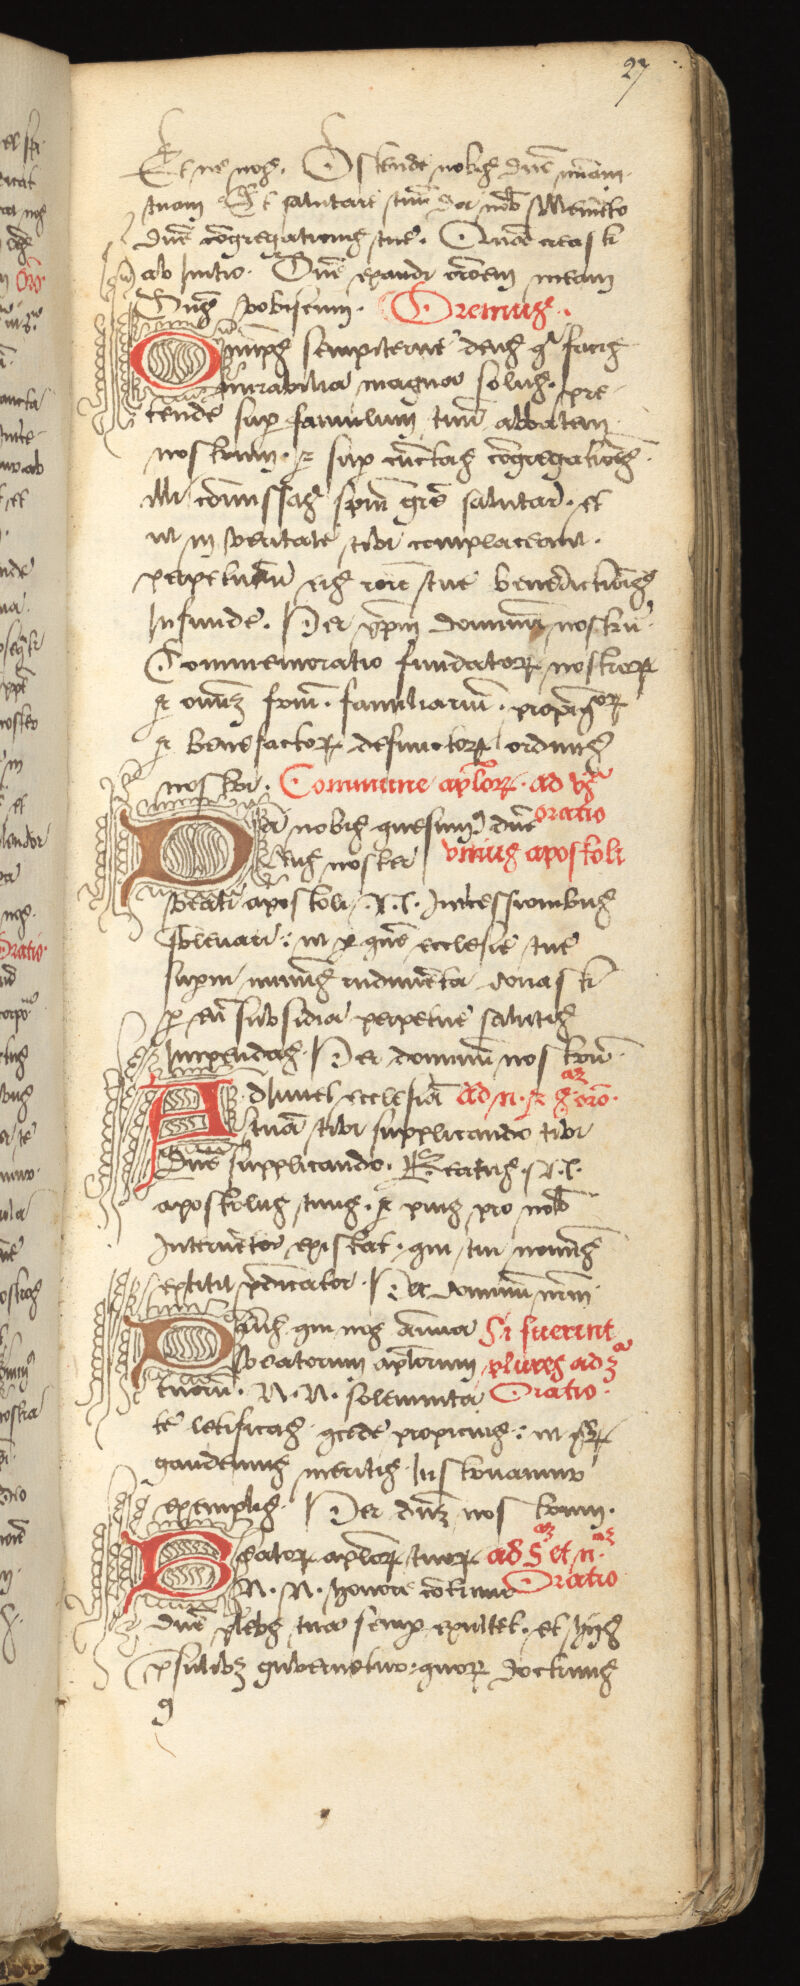 27
Et ne nos. Ostende nobis dne miam
tuam Et salutare tuu da nob Memeto
dne congregationis tue. Qua creasti
ab initio. Dne exaudi oroem meam
Dns vobiscum. Oremus.
Omps sempiterne deus q facis
mirabilia magna solus. pre
tende sup famulum tuu abbatem
nostrum. et sup cuctas cogregationes
illi comissas spm gre salutar. et
ut in veritate tibi complaceant.
perpetuu eis rore tue benedictiois
infunde. Per xpm dominu nostru
Commemoratio fundator nostror
et omniu frm. familiariu. propiqor
et benefactor defunctor ordinis
nostri. Commune aplor. ad vs
Da nobis quesum dne oratio
deus noster unius apostoli
beati apostoli .N. Intcessionibus
sblevari: ut p que ecclesie tue
supni muneris rudimeta donasti
p eu subsidia perpetue salutis
impendas. Per dominu nostru.
Adsit ecclesia ad n. et s. oro.
tua tibi supplicando tibi
dne supplicando. Beatus .N.
apostolus tuus. et pius pro nob
interuetor existat. qui tui nominis
extitit pdicator. Per dominu nrm.
Deus qui nos annua Si fuerint
beatorum aplorum plures ad 3a
tuoru. N. N. solemnita Oratio.
te letificas. qcede propicius: ut qor
gaudemus meritis. Instruamur
exemplis. Per dnz nostrum.
Beator aplor tuor ad s et n.
N. N. honore cotinuo Oratio
dne plebs tua semp exultet. et hijs
psulibz gubernetur. quor doctrinis